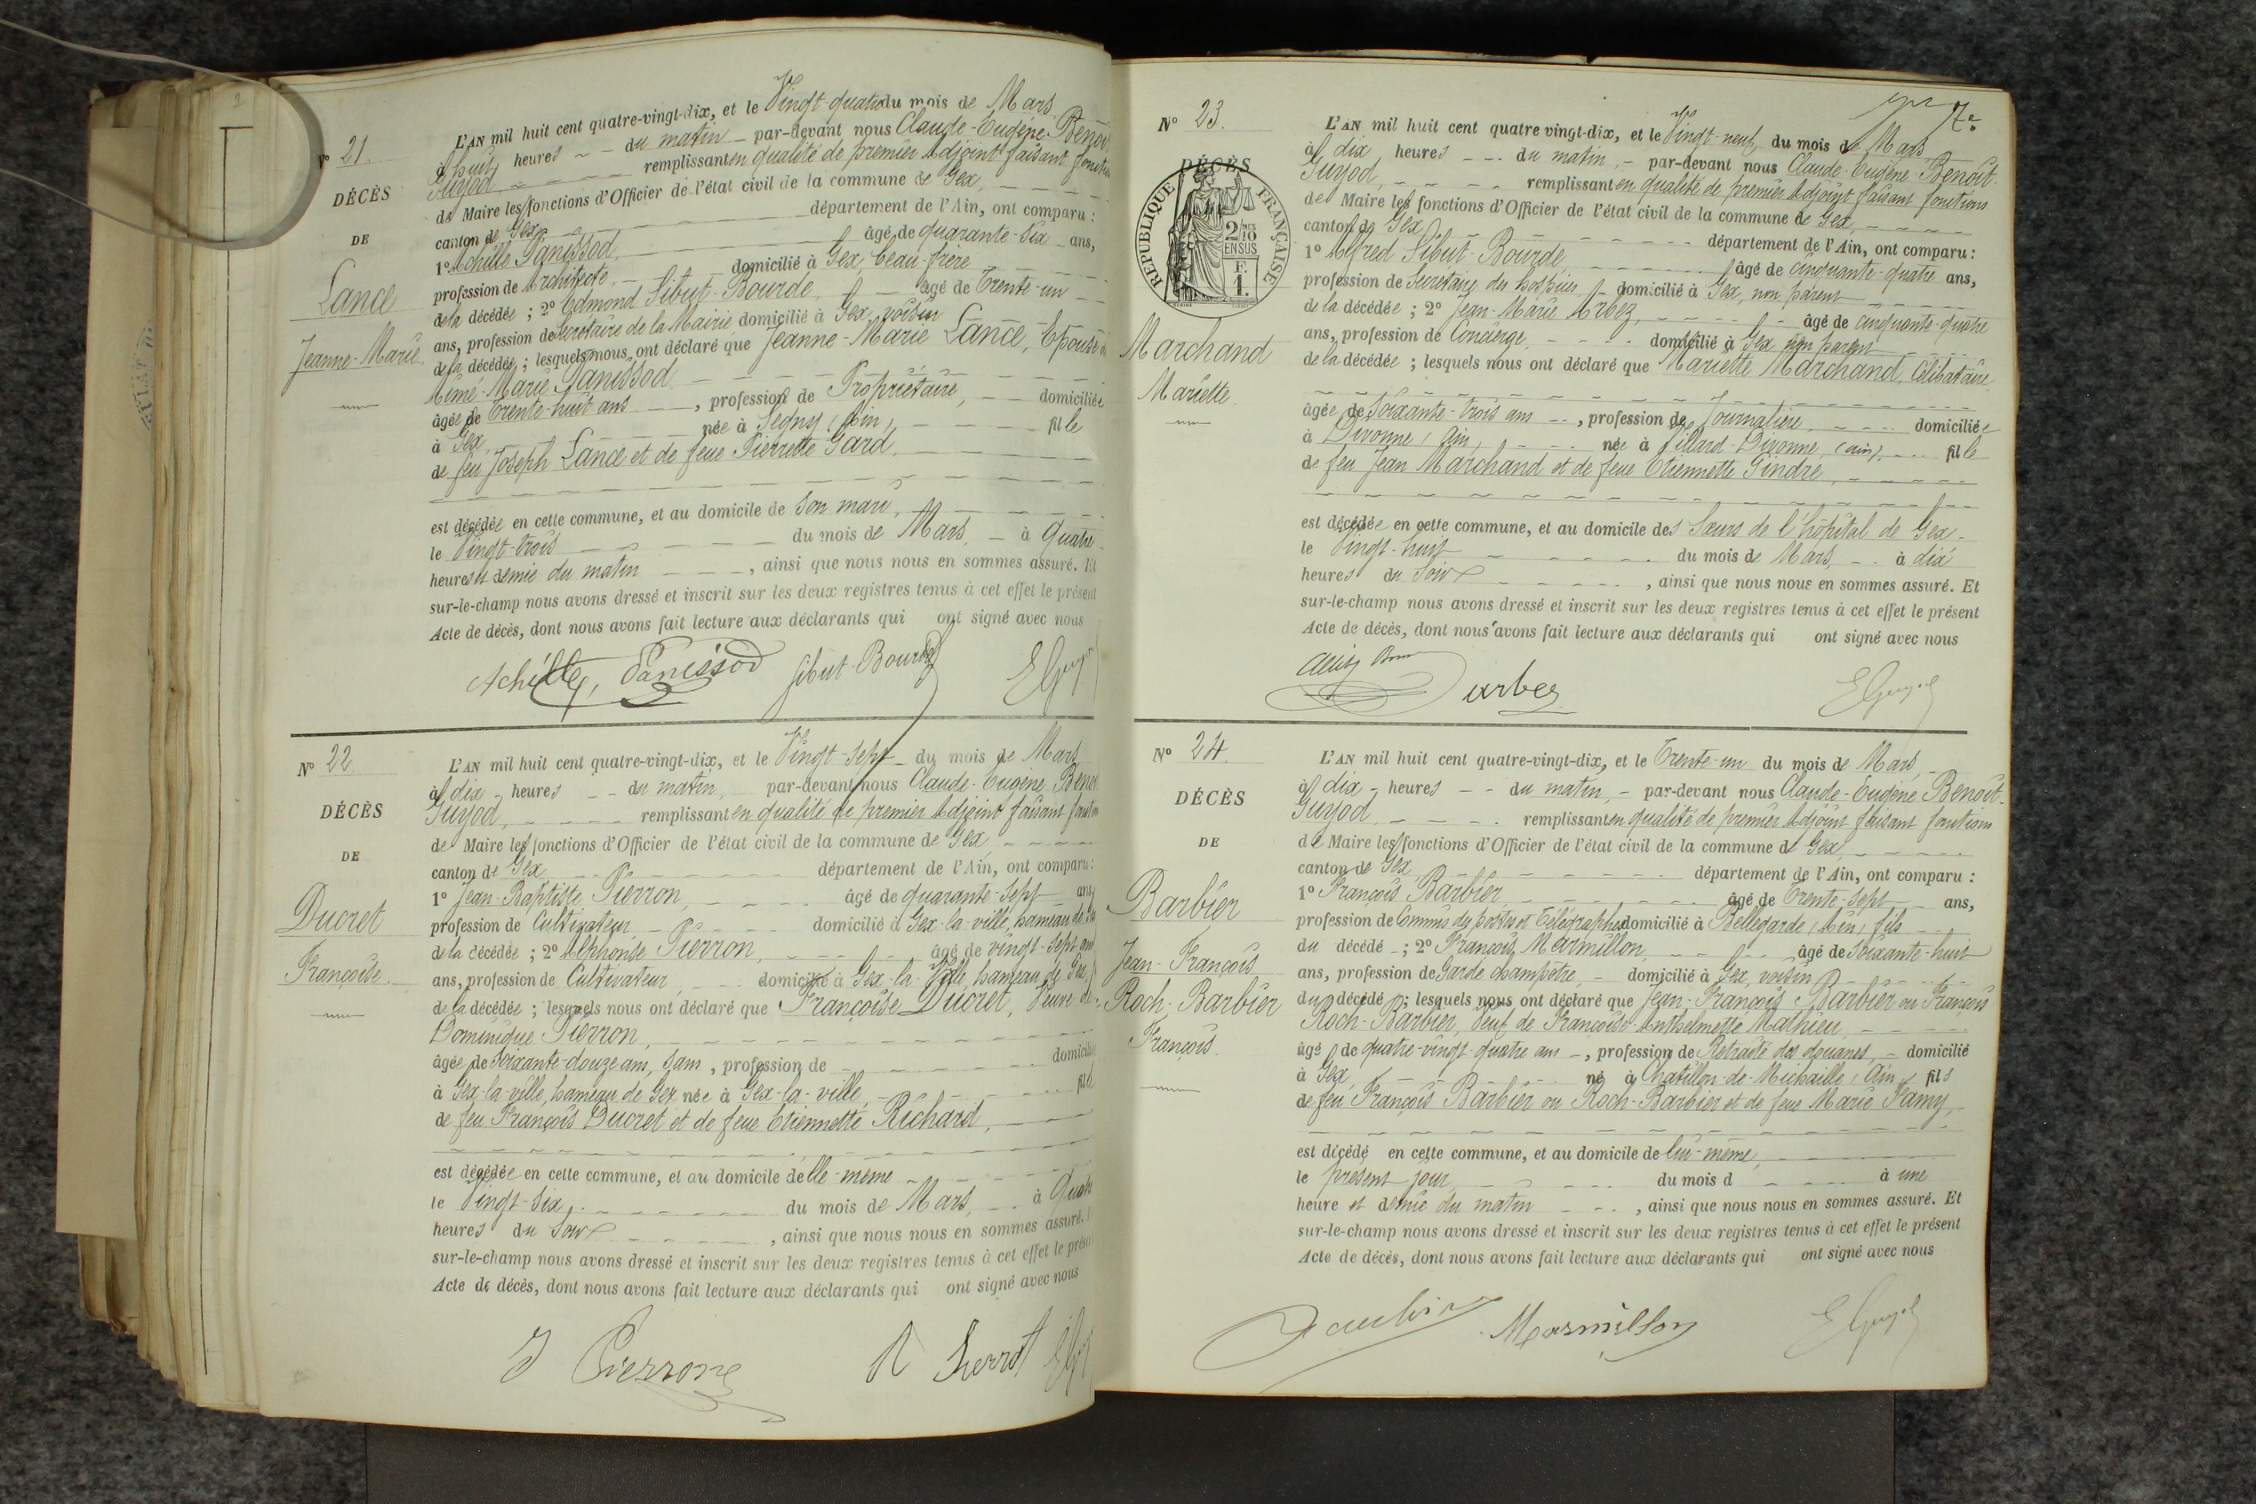 N° 21.
DÉCÈS
DE
Lance
Jeanne-Marie
L'AN mil huit cent quatre-vingt-dix, et le Vingt-quatre du mois de Mars
à huit heures du matin par-devant nous Claude-Eugène-Benoit
Guyod, remplissant en qualité de premier Adjoint faisant fonctions
de Maire les fonctions d'Officier de l'état civil de la commune de Gex,
canton de Gex département de l'Ain, ont comparu :
1° Achille Panissod, âgé de quarante-six ans,
profession de Architecte, domicilié à Gex, beau-frère
de la décédée ; 2° Edmond Sibut-Bourde, âgé de Trente-un
ans, profession de Secrétaire de la Mairie domicilié à Gex, voisin
de la décédée ; lesquels nous ont déclaré que Jeanne-Marie Lance, Epouse de
Aimé-Marie Panissod
âgée de Trente-huit ans, profession de Propriétaire, domiciliée
à Gex, née à Segny (Ain), fille
de feu Joseph Lance et de feue Pierrette Gard,
est décédée en cette commune, et au domicile de son mari,
le Vingt-trois du mois de Mars, à Quatre
heures et demie du matin, ainsi que nous nous en sommes assuré. Et
sur-le-champ nous avons dressé et inscrit sur les deux registres tenus à cet effet le présent
Acte de décès, dont nous avons fait lecture aux déclarants qui ont signé avec nous
Achille, Panissod Sibut-Bourde EGuyod
N° 22
DÉCÈS
DE
Ducret
Françoise
L'AN mil huit cent quatre-vingt-dix, et le Vingt-sept du mois de Mars
à dix heures du matin, par-devant nous Claude-Eugène Benoit
Guyod, remplissant en qualité de premier Adjoint faisant fonctions
de Maire les fonctions d'Officier de l'état civil de la commune de Gex,
canton de Gex, département de l'Ain, ont comparu :
1° Jean-Baptiste Pierron, âgé de quarante-sept ans,
profession de Cultivateur, domicilié à Gex-la-ville, hameau de Gex
de la décédée ; 2° Alphonse Pierron, âgé de vingt-sept ans
ans, profession de Cultivateur, domicilié à Gex-la-Ville, hameau de Gex,
de la décédée ; lesquels nous ont déclaré que Françoise Ducret, Veuve de
Dominique Pierron,
âgée de soixante-douze ans, sans, profession de domiciliée
à Gex-la-ville, hameau de Gex née à Gex-la-ville, fille
de feu François Ducret et de feue Etiennette Richard,
est décédée en cette commune, et au domicile d'elle-même
le Vingt-six, du mois de Mars, à Quatre
heures du soir, ainsi que nous nous en sommes assuré.
sur-le-champ nous avons dressé et inscrit sur les deux registres tenus à cet effet le présent
Acte de décès, dont nous avons fait lecture aux déclarants qui ont signé avec nous
J Pierrone
N° 23.
DÉCÈS
RÉPUBLIQUE FRANÇAISE
2/10 EN SUS
F. 1.
Marchand
Mariette
7e
L'AN mil huit cent quatre vingt-dix, et le Vingt-neuf du mois de Mars
à dix heures du matin, par-devant nous Claude-Eugène-Benoit
Guyod, remplissant en qualité de premier Adjoint faisant fonctions
de Maire les fonctions d'Officier de l'état civil de la commune de Gex,
canton de Gex département de l'Ain, ont comparu :
1° Alfred Sibut-Bourde, âgé de cinquante-quatre ans,
profession de Secrétaire des hospices, domicilié à Gex, non parent
de la décédée ; 2° Jean-Marie Arbez, âgé de cinquante-quatre
ans, profession de Concierge, domicilié à Gex non parent
de la décédée ; lesquels nous ont déclaré que Mariette Marchand, Célibataire
âgée de Soixante-trois ans, profession de Journalière, domiciliée
à Divonne (Ain), née à Villard-Divonne, (ain), fille
de feu Jean Marchand et de feue Etiennette Gindre,
est décédée en cette commune, et au domicile des Sœurs de l'hôpital de Gex
le Vingt-huit du mois de Mars, à dix
heures du soir, ainsi que nous nous en sommes assuré. Et
sur-le-champ nous avons dressé et inscrit sur les deux registres tenus à cet effet le présent
Acte de décès, dont nous avons fait lecture aux déclarants qui ont signé avec nous
arbez EGuyod
N° 24.
DÉCÈS
DE
Barbier
Jean-François
Roch-Barbier
François.
L'AN mil huit cent quatre-vingt-dix, et le Trente-un du mois de Mars
à dix heures du matin, par-devant nous Claude-Eugène-Benoit
Guyod, remplissant en qualité de premier Adjoint faisant fonctions
de Maire les fonctions d'Officier de l'état civil de la commune de Gex,
canton de Gex, département de l'Ain, ont comparu :
1° François Barbier, âgé de Trente-sept ans,
profession de Commis des postes et Télégraphes domicilié à Bellegarde (Ain) fils
du décédé ; 2° François Marmillon, âgé de soixante-huit
ans, profession de Garde champêtre, domicilié à Gex, voisin
du décédé ; lesquels nous ont déclaré que Jean-François Barbier ou François
Roch-Barbier, Veuf de Françoise-Anthelmette Mathieu
âgé de quatre-vingt-quatre ans, profession de Retraité des douanes, domicilié
à Gex, né à Chatillon-de-Michaille (Ain) fils
de feu François Barbier ou Roch-Barbier et de feue Marie Famy,
est décédé en cette commune, et au domicile de lui-même,
le présent jour, du mois d à une
heure et demie du matin, ainsi que nous nous en sommes assuré. Et
sur-le-champ nous avons dressé et inscrit sur les deux registres tenus à cet effet le présent
Acte de décès, dont nous avons fait lecture aux déclarants qui ont signé avec nous
Marmillon EGuyod